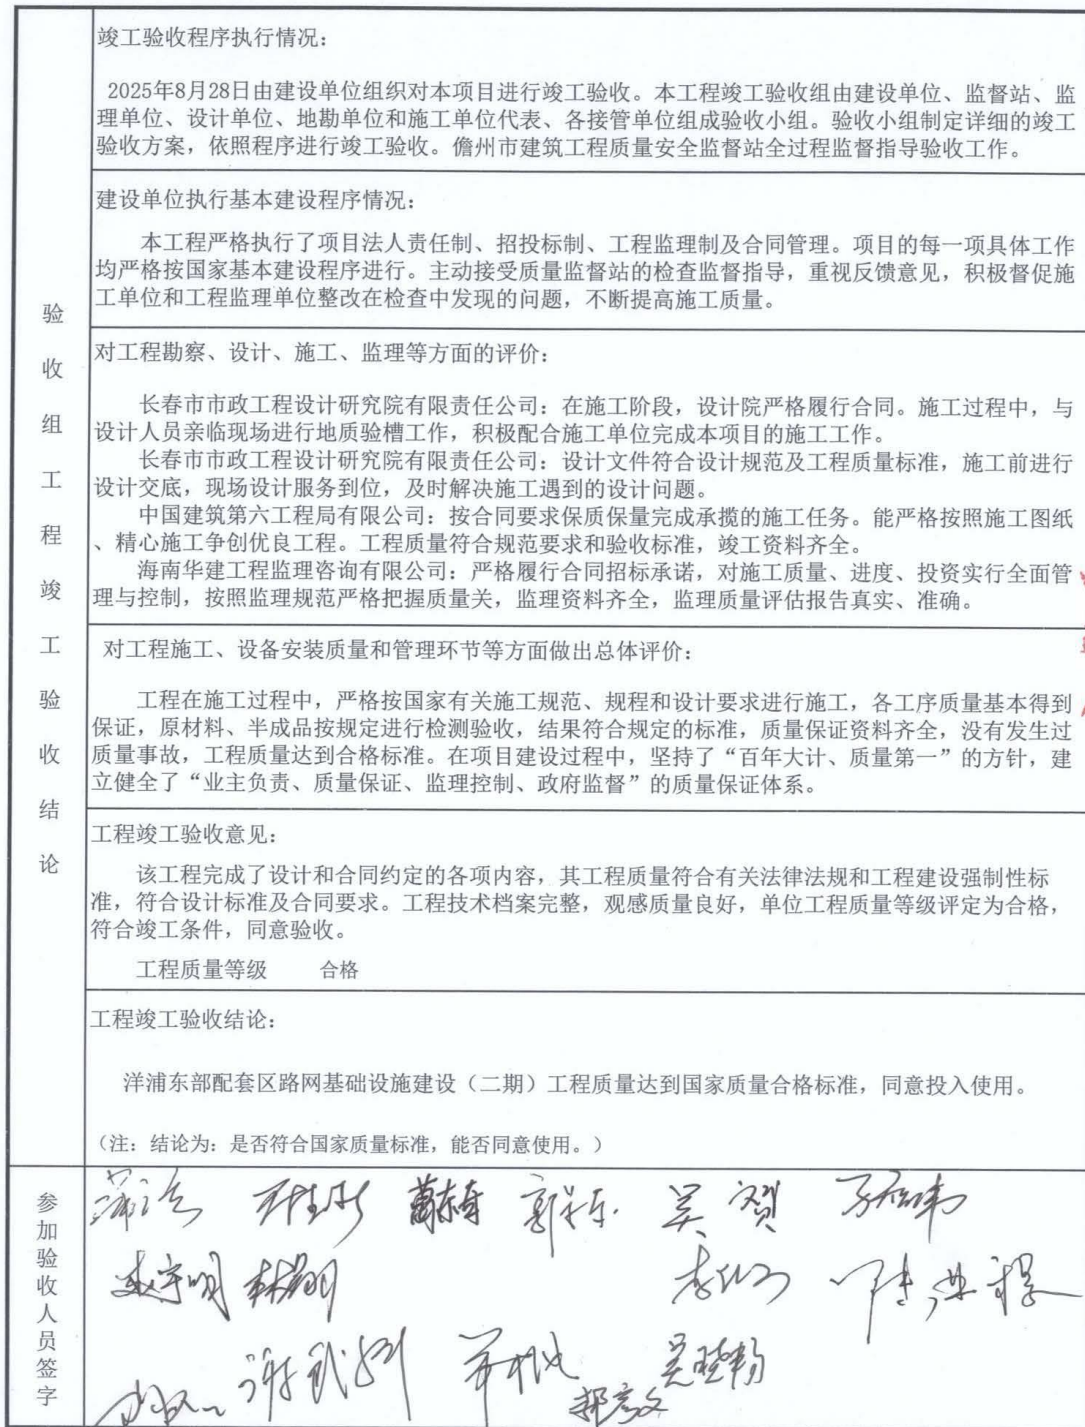 竣工验收程序执行情况：
2025年8月28日由建设单位组织对本项目进行竣工验收。本工程竣工验收组由建设单位、监督站、监
理单位、设计单位、地勘单位和施工单位代表、各接管单位组成验收小组。验收小组制定详细的竣工
验收方案，依照程序进行竣工验收。儋州市建筑工程质量安全监督站全过程监督指导验收工作。
建设单位执行基本建设程序情况：
本工程严格执行了项目法人责任制、招投标制、工程监理制及合同管理。项目的每一项具体工作
均严格按国家基本建设程序进行。主动接受质量监督站的检查监督指导，重视反馈意见，积极督促施
工单位和工程监理单位整改在检查中发现的问题，不断提高施工质量。
验收组工程竣工验收结论
对工程勘察、设计、施工、监理等方面的评价：
长春市市政工程设计研究院有限责任公司：在施工阶段，设计院严格履行合同。施工过程中，与
设计人员亲临现场进行地质验槽工作，积极配合施工单位完成本项目的施工工作。
长春市市政工程设计研究院有限责任公司：设计文件符合设计规范及工程质量标准，施工前进行
设计交底，现场设计服务到位，及时解决施工遇到的设计问题。
中国建筑第六工程局有限公司：按合同要求保质保量完成承揽的施工任务。能严格按照施工图纸
、精心施工争创优良工程。工程质量符合规范要求和验收标准，竣工资料齐全。
海南华建工程监理咨询有限公司：严格履行合同招标承诺，对施工质量、进度、投资实行全面管
理与控制，按照监理规范严格把握质量关，监理资料齐全，监理质量评估报告真实、准确。
对工程施工、设备安装质量和管理环节等方面做出总体评价：
工程在施工过程中，严格按国家有关施工规范、规程和设计要求进行施工，各工序质量基本得到
保证，原材料、半成品按规定进行检测验收，结果符合规定的标准，质量保证资料齐全，没有发生过
质量事故，工程质量达到合格标准。在项目建设过程中，坚持了“百年大计、质量第一”的方针，建
立健全了“业主负责、质量保证、监理控制、政府监督”的质量保证体系。
工程竣工验收意见：
该工程完成了设计和合同约定的各项内容，其工程质量符合有关法律法规和工程建设强制性标
准，符合设计标准及合同要求。工程技术档案完整，观感质量良好，单位工程质量等级评定为合格，
符合竣工条件，同意验收。
工程质量等级 合格
工程竣工验收结论：
洋浦东部配套区路网基础设施建设（二期）工程质量达到国家质量合格标准，同意投入使用。
（注：结论为：是否符合国家质量标准，能否同意使用。）
参加验收人员签字
吴贺
郑彦文 吴晓